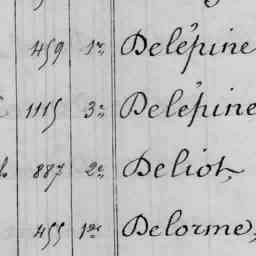 459 1re Delépine
1115 3e Delépine
887 2e Deliot,
455 1re Delorme,